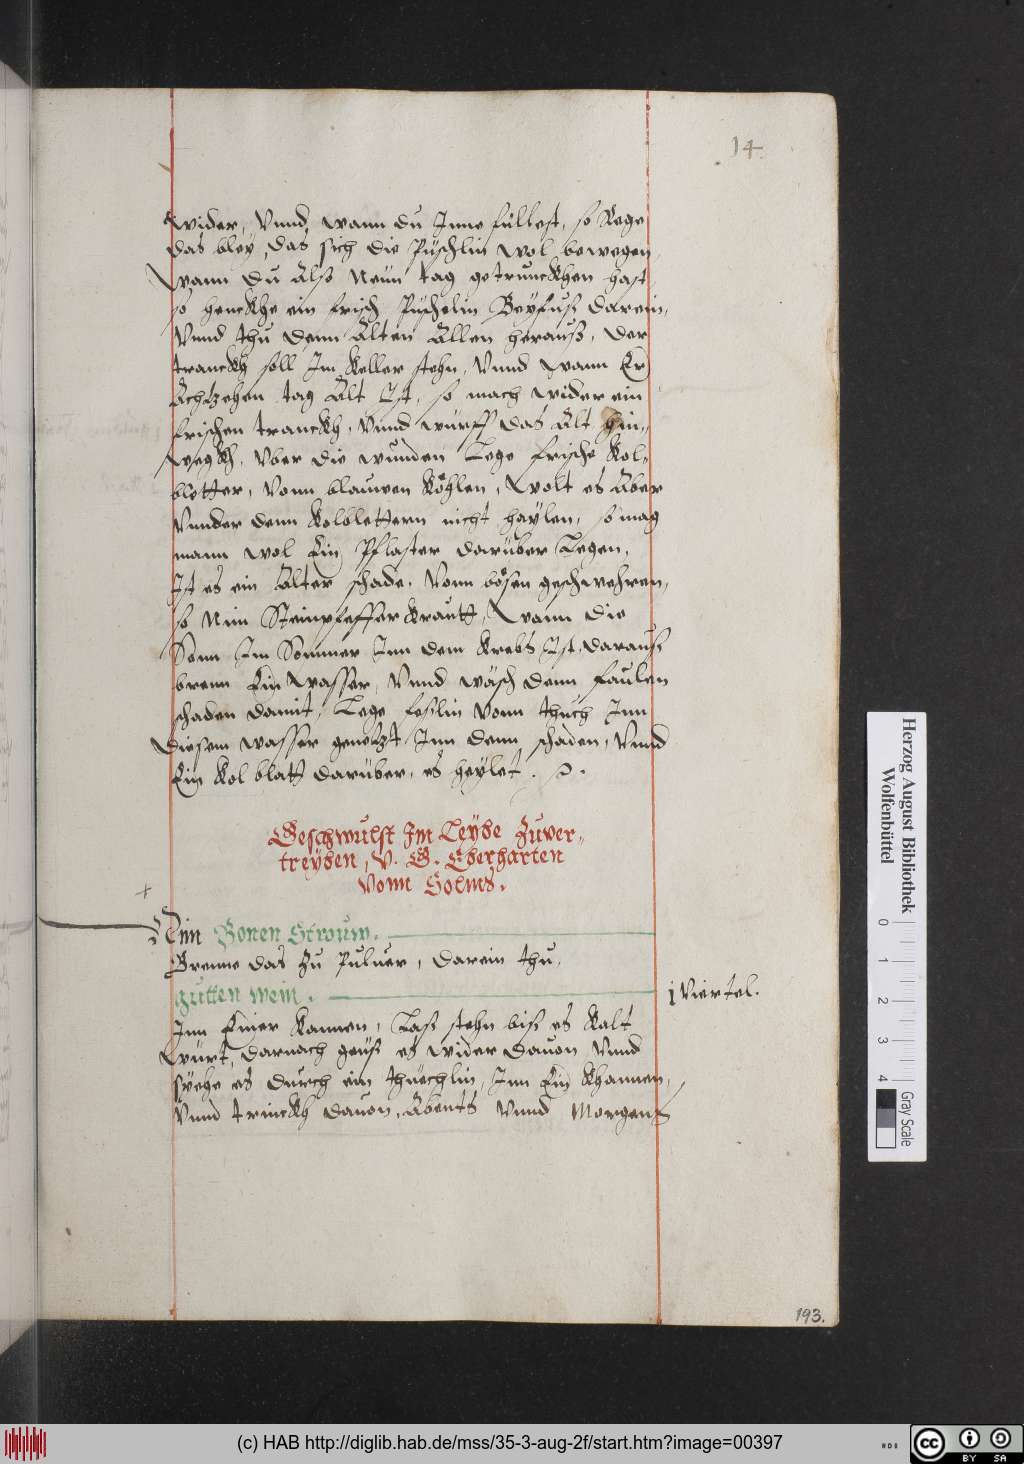 14.
wider, Vnnd, wann du Inne füllest, so Rege
das bley, das sich die Püschlin wol bewegen,
wann du Also Neün tag getrunckhen hast
so henckhe ein frisch Püschelin Beyfuß darein,
Vnnd thu denn Alten Allen herauß, der
tranckh soll Im Keller stehn, Vnnd wann Er
Achtzehen tag Alt Ist, so mach wider ein
frischen tranckh, Vnnd würff das Alt hin-
wegkh, Vber die wunden Lege frische Kol-
bletter, Vonn blauwen Köhlen, Wolt es Aber
Vnnder denn Kolblettern nicht haylen, so mag
mann wol Ein Pflaster darüber Legen,
Ist es ein Alter schade, Vonn bösen geschwehren,
so Nim Steinpfefferkrautt, Wann die
Sonn Im Sommer Inn dem Krebs Ist, darauß
brenn Ein Wasser, Vnnd wäsch denn faulen
schaden damit, Lege feßlin Vonn thuch Inn
diesem wasser genetzt, Inn denn schaden, Vnnd
Ein Kol blatt darüber, es heylet.
Geschwulst Im Leybe Zuver-
treyben, V. G. Eberharten
Vonn Solms.
Nim Bonen Strouw.
Brenne das Zu Puluer, darein thu,
gutten wein. j Viertel.
Inn Einer Kannen, Laß stehn biß es Kalt
Würt, darnach geüß es wider dauon Vnnd
syehe es durch ein thuechlin, Inn Ein Khannen,
Vnnd trinckh dauon, Abents Vnnd Morgens
193.
Herzog August Bibliothek
Wolfenbüttel
0 1 2 3 4
Gray Scale
(c) HAB http://diglib.hab.de/mss/35-3-aug-2f/start.htm?image=00397
cc BY SA